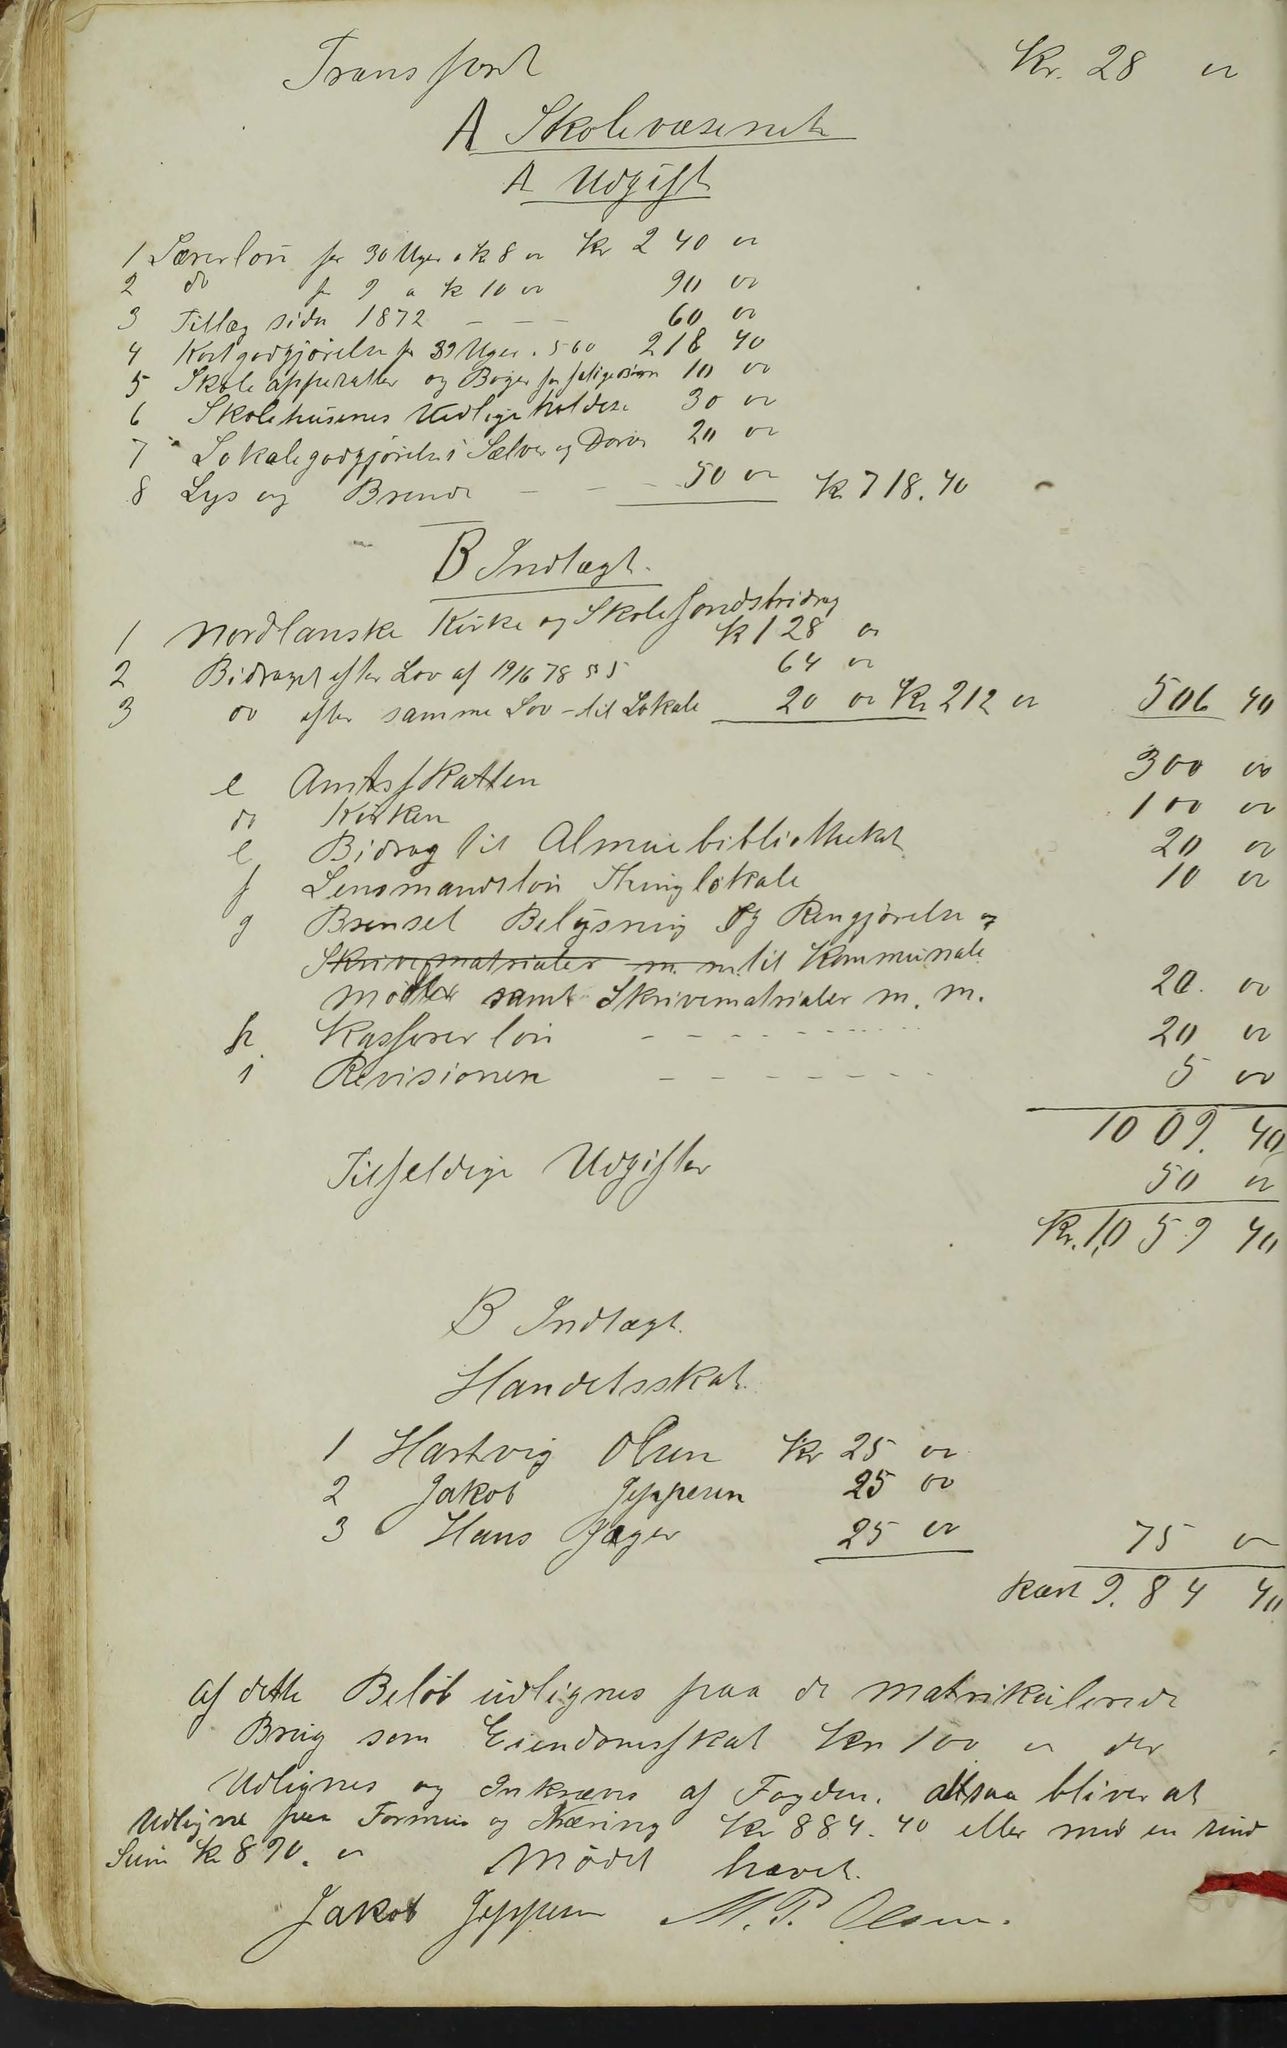 Transport Kr. 28 00
A Skolevæsenet
A Udgift
1 Lærerløn for 30 Uger a Kr 8 00 Kr 240 00
2 do for 9 a Kr 10 00 90 00
3 Tillæg siden 1872 - - - 60 00
4 Kostgodgjørelse for 39 Uger a 560 218 40
5 Skoleapparatter og Bøger for 10 00
6 Skolehusenes Vedligeholdese 30 00
7 Lokalegodgjørelse i Sælver og 20 00
8 Lys og Brende - - - 50 00 Kr 718.40
B Indtægt.
1 Nordlanske Kirke og Skolefondsbidrag Kr 128 00
2 Bidraget efter Lov af 19/6 78 § 5 64 00
3 do efter samme Lov - til Lokale 20 00 Kr 212 00 506 40
c Amtsskatten 300 00
d Kirken 100 00
e Bidrag til Almuebibliotheket 20 00
f Lensmandsløn Thinglokale 10 00
g Brensel Belysning og Rengjørelse og
Skrivematrialer m. m. til Kommunale
Møder samt Skrivematrialer m. m. 20. 00
h Kasserer løn - - - - - - - 20 00
i Revisionen - - - - - - - 5 00
1009. 40
Tilfeldige Udgifter 50 00
Kr. 1059 40
B Indtægt.
Handelsskat
1 Hartvig Olsen Kr 25 00
2 Jakob Jeppesen 25 00
3 Hans Jæger 25 00 75 00
984 40
af dette Beløb udlignes paa de matrikulerede
Brug som Eiendomsskat Kr 100 00 der
Udlignes og Inkræves af Fogden. altsaa bliver at
Udligne paa Formue og Næring Kr 884.40 eller med en rund
Sum Kr 890. 00 Mødet hævet.
Jakob Jeppesen M. P. Olsen.